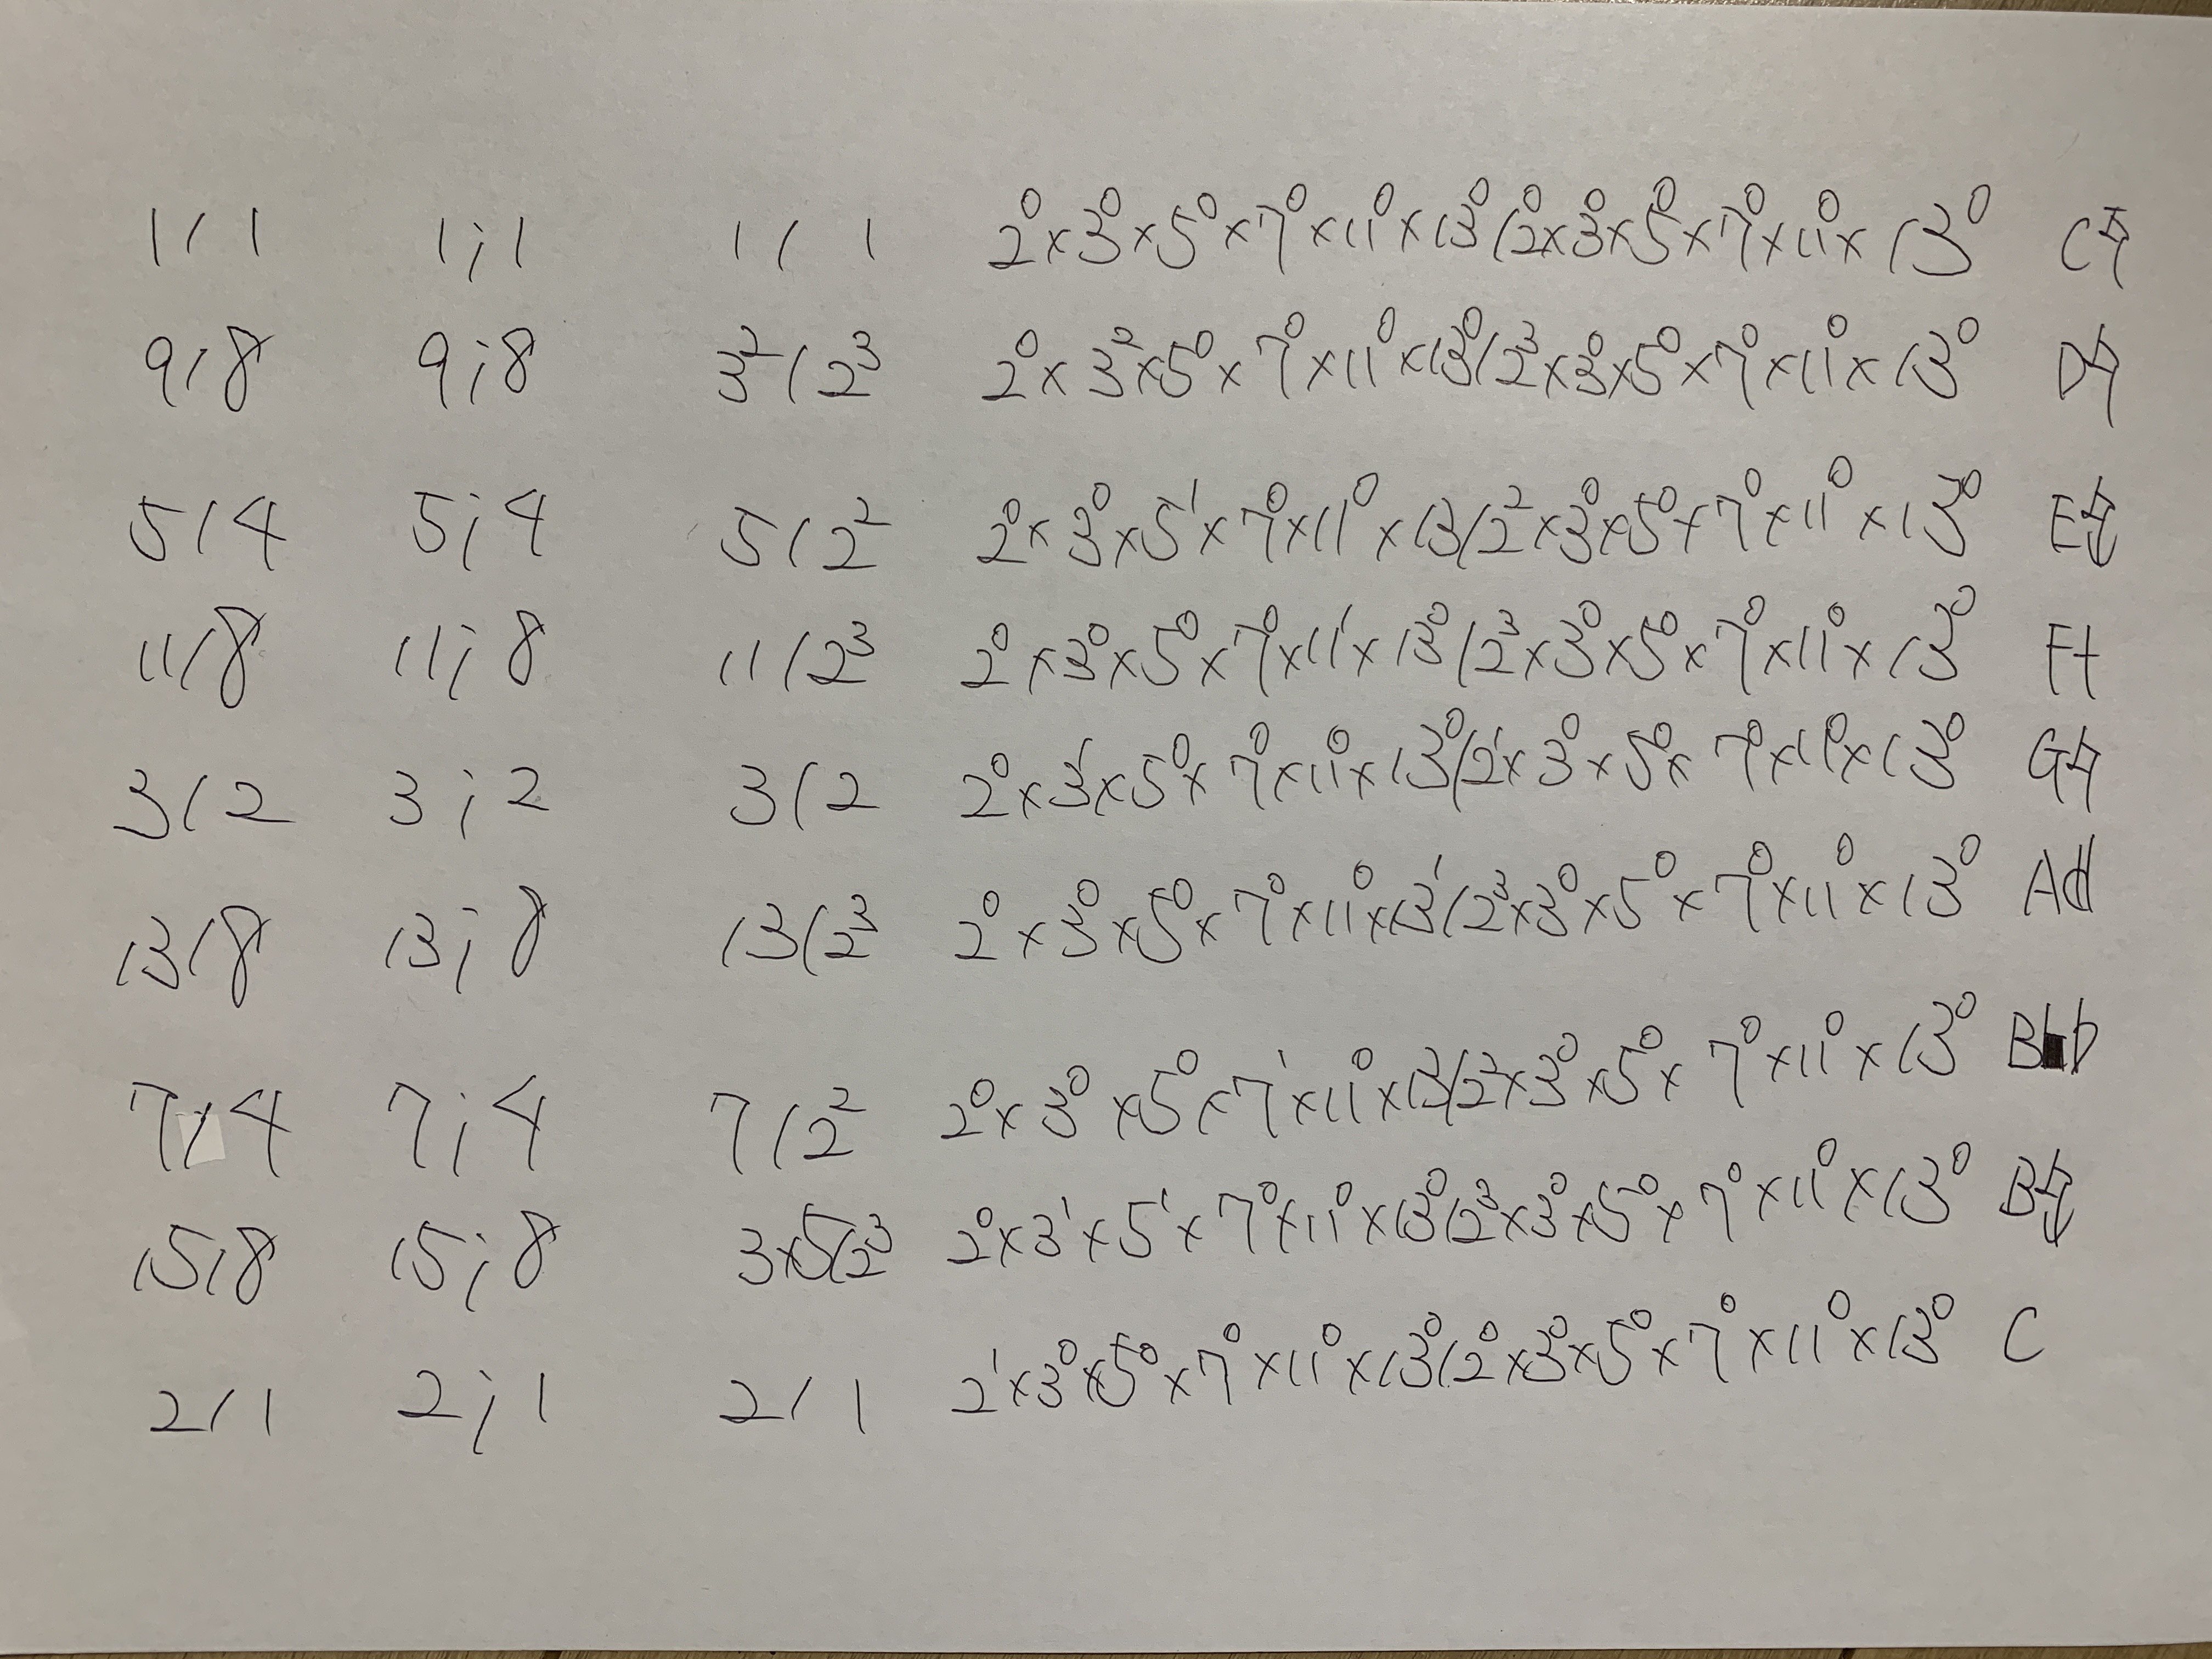 1/1 1;1 1/1 2⁰×3⁰×5⁰×7⁰×11⁰×13⁰/2⁰×3⁰×5⁰×7⁰×11⁰×13⁰ C♮
9/8 9;8 3²/2³ 2⁰×3²×5⁰×7⁰×11⁰×13⁰/2³×3⁰×5⁰×7⁰×11⁰×13⁰ D♮
5/4 5;4 5/2² 2⁰×3⁰×5¹×7⁰×11⁰×13/2²×3⁰×5⁰×7⁰×11⁰×13⁰ E♮
11/8 11;8 11/2³ 2⁰×3⁰×5⁰×7⁰×11¹×13⁰/2³×3⁰×5⁰×7⁰×11⁰×13⁰ F
3/2 3;2 3/2 2⁰×3¹×5⁰×7⁰×11⁰×13⁰/2¹×3⁰×5⁰×7⁰×11⁰×13⁰ G♮
13/8 13;8 13/2³ 2⁰×3⁰×5⁰×7⁰×11⁰×13¹/2³×3⁰×5⁰×7⁰×11⁰×13⁰ Ad
7/4 7;4 7/2² 2⁰×3⁰×5⁰×7¹×11⁰×13/2²×3⁰×5⁰×7⁰×11⁰×13⁰ B
15/8 15;8 3×5/2³ 2⁰×3¹×5¹×7⁰×11⁰×13⁰/2³×3⁰×5⁰×7⁰×11⁰×13⁰ B♮
2/1 2;1 2/1 2¹×3⁰×5⁰×7⁰×11⁰×13⁰/2⁰×3⁰×5⁰×7⁰×11⁰×13⁰ C